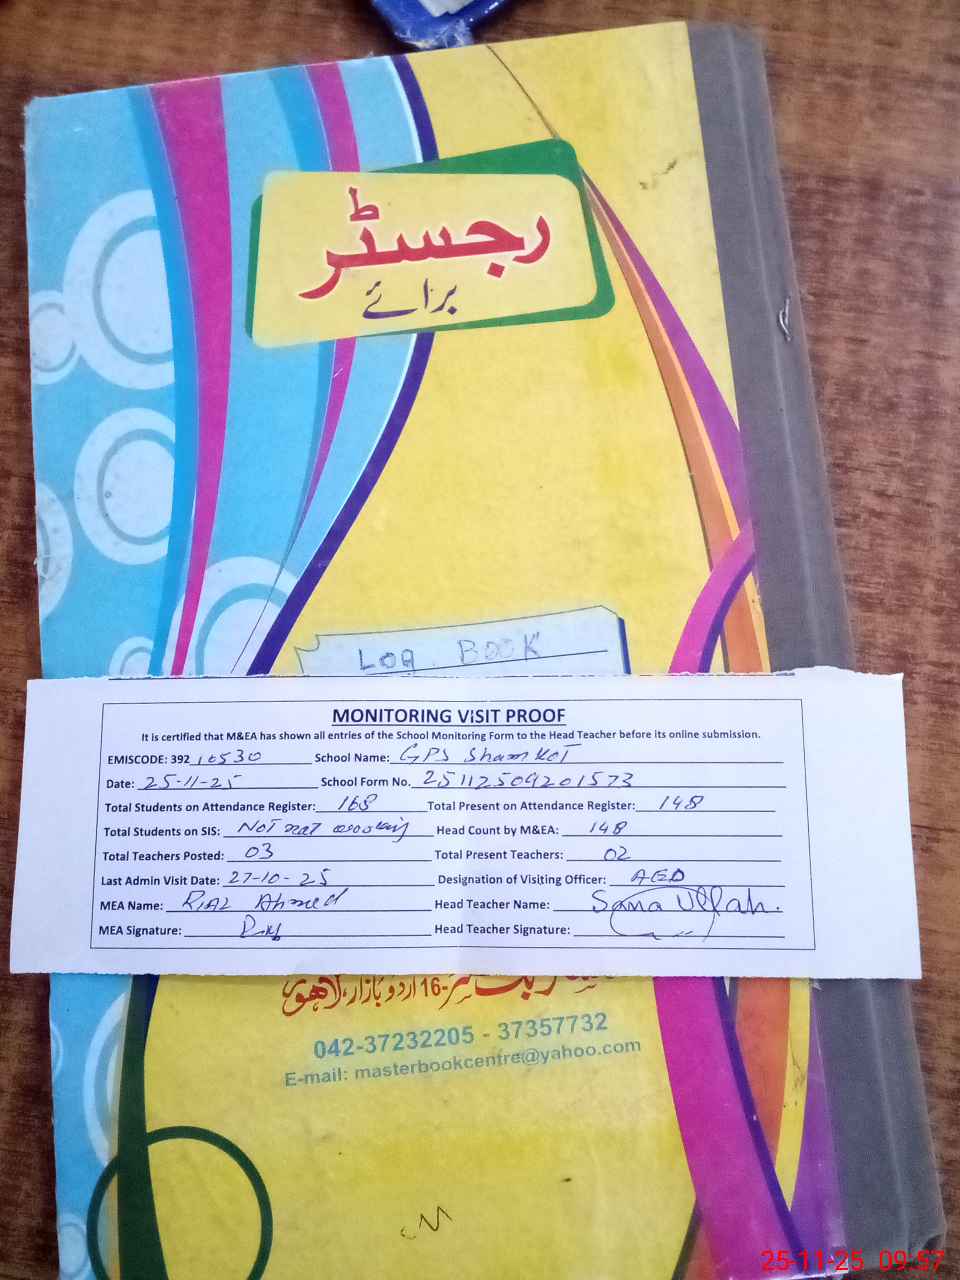 رجسٹر
برائے
LOG BOOK
MONITORING VISIT PROOF
It is certified that M&EA has shown all entries of the School Monitoring Form to the Head Teacher before its online submission.
EMISCODE: 392 10530 School Name: GPS Sham Kot
Date: 25-11-25 School Form No. 25112509201573
Total Students on Attendance Register: 168 Total Present on Attendance Register: 148
Total Students on SIS: Not net working Head Count by M&EA: 148
Total Teachers Posted: 03 Total Present Teachers: 02
Last Admin Visit Date: 27-10-25 Designation of Visiting Officer: AEO
MEA Name: Riaz Ahmed Head Teacher Name: Sana Ullah.
MEA Signature: Head Teacher Signature:
16-اردو بازار، لاہور
042-37232205 - 37357732
E-mail: masterbookcentre@yahoo.com
25-11-25 09:57